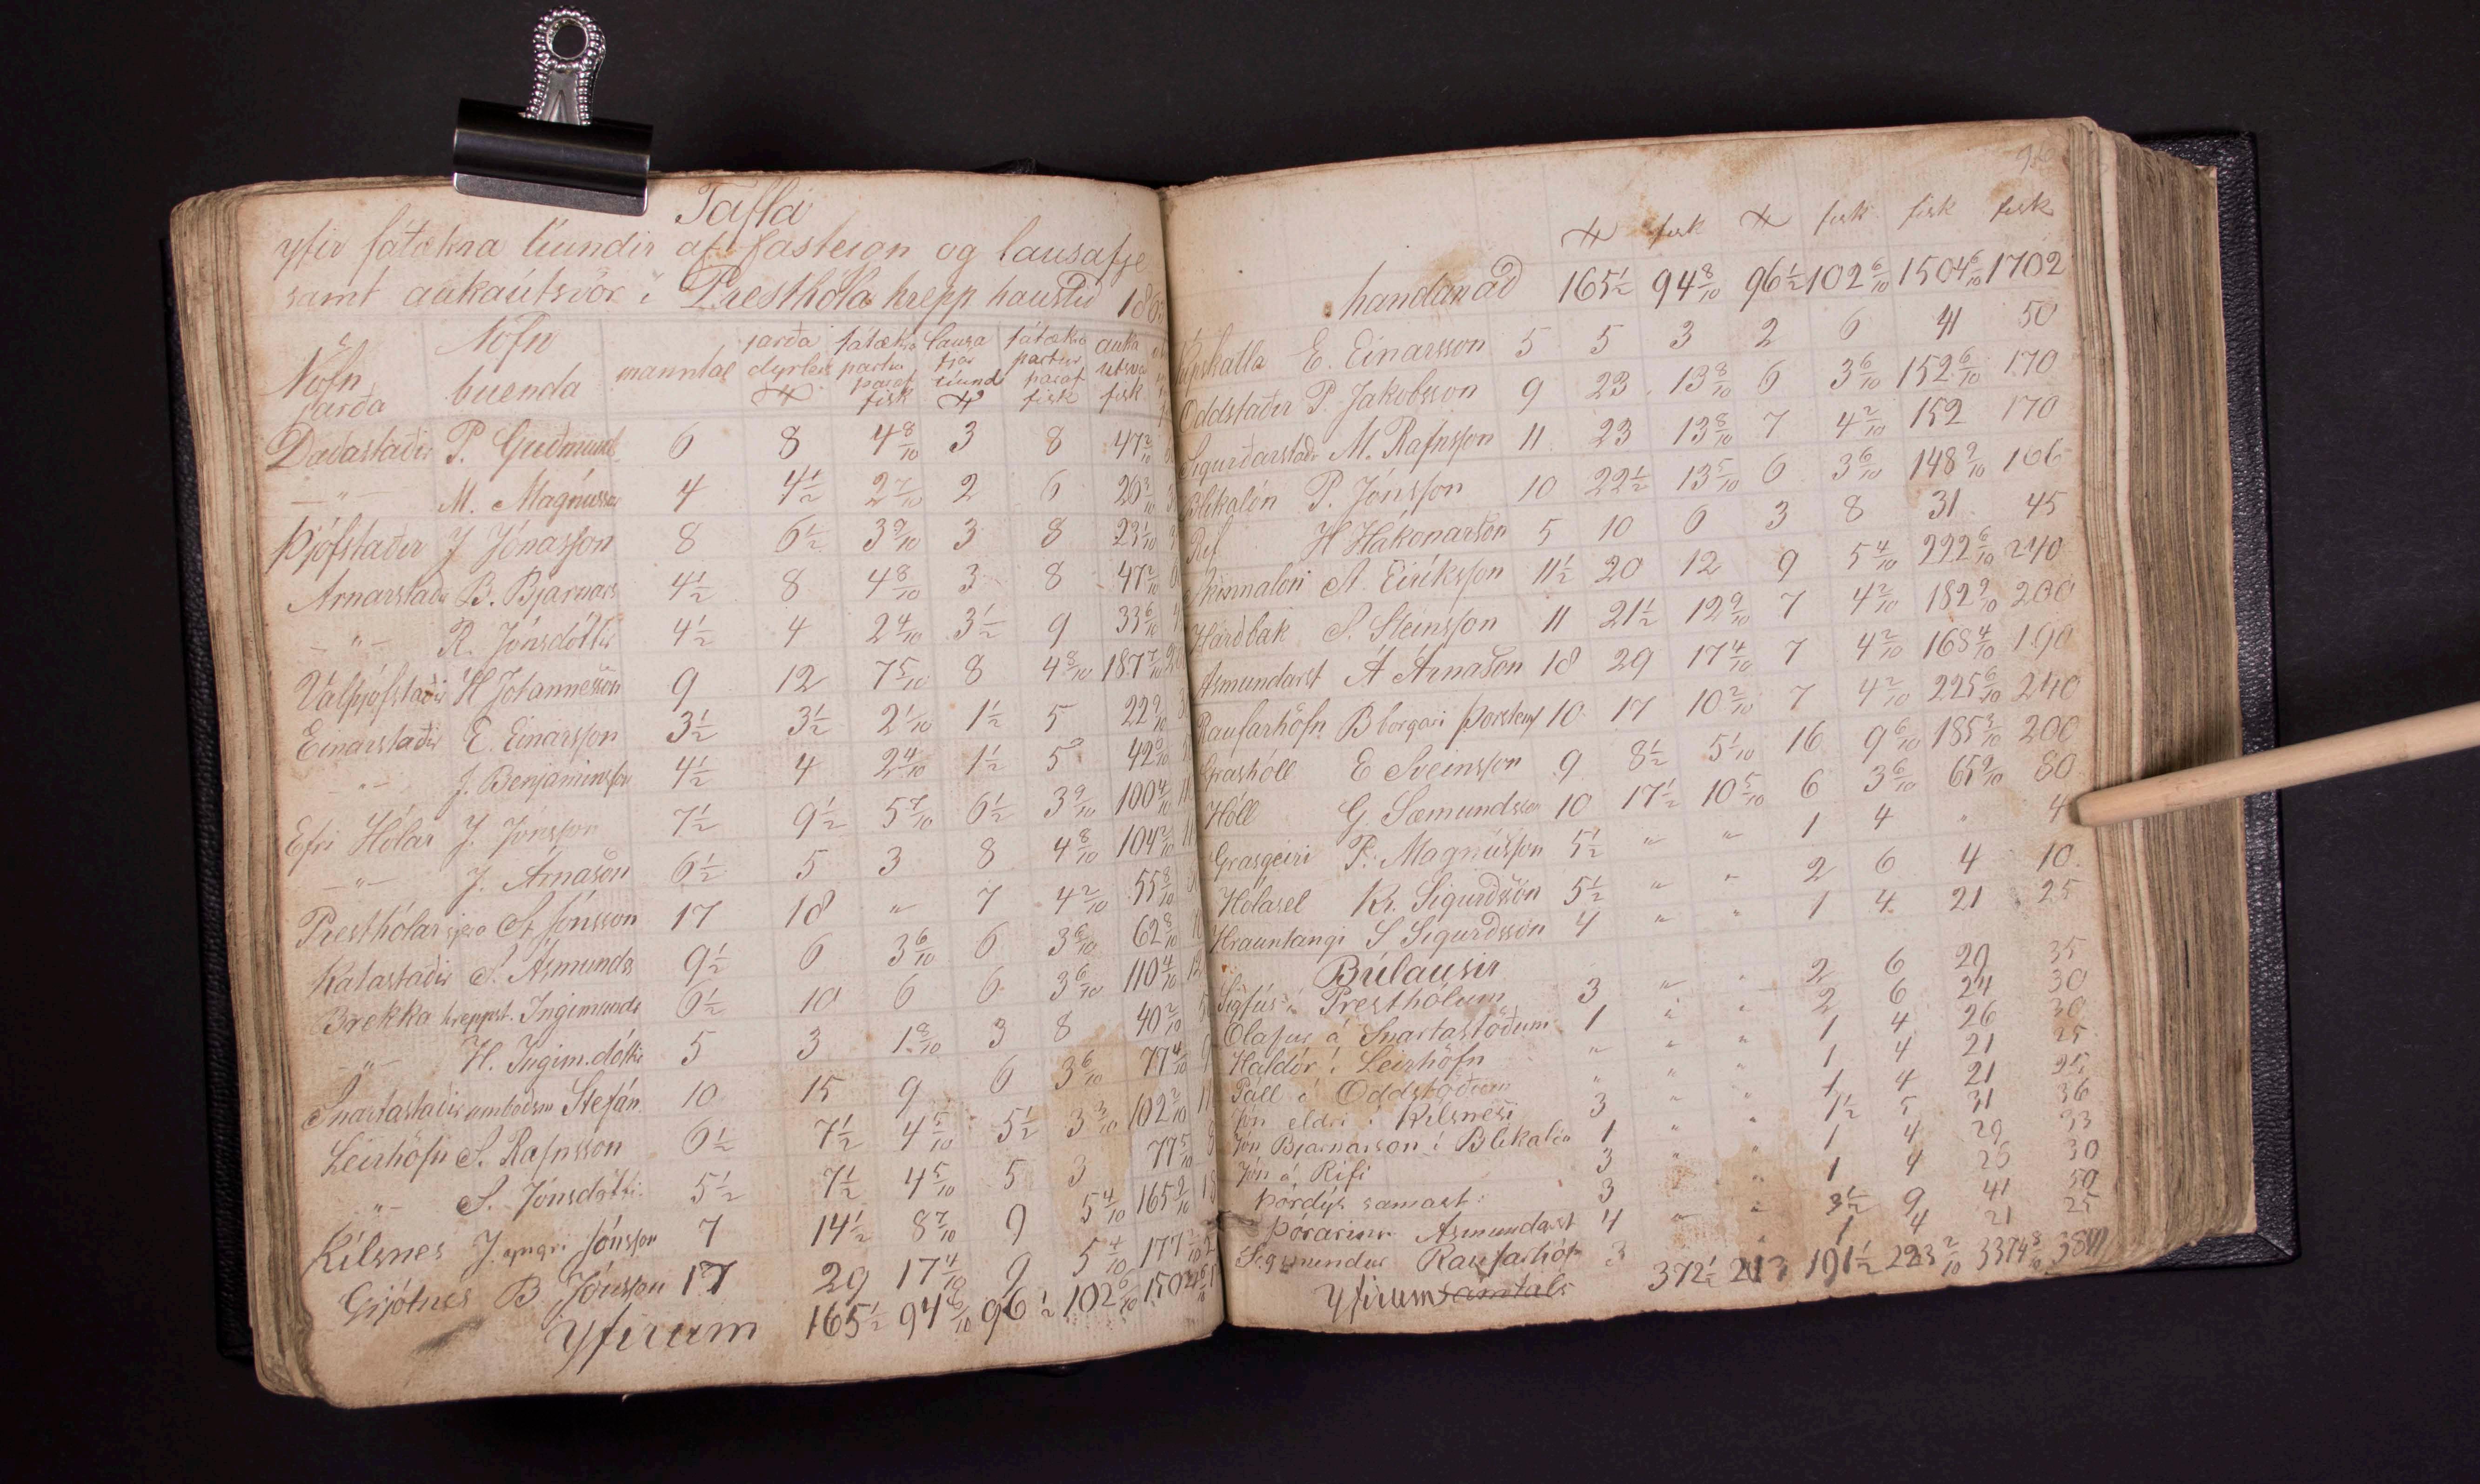 Tafla
yfir fátækra tíundir af fasteign og lausafje
samt aukaútsvör i Presthóla hrepp haustið 186
Nöfn jarða Nöfn buenda manntal jarða dyrleik fatækra partur þaraf fisk lausa fjár tíund fátækra partur þaraf fisk auka utsvar fisk
Daðastaðir P. Guðmund 6 8 4 8/10 3 8 47 2/10
— " — M. Magnússon 4 4 1/2 2 7/10 2 6 26 3/10
Þjófstaðir J Jónasson 8 6 1/2 3 9/10 3 8 23 1/10
Arnarstaðir B. Bjarnars 4 1/2 8 4 8/10 3 8 47 2/10
— " — R. Jónsdóttir 4 1/2 4 2 4/10 3 1/2 9 33 6/10
Valþjófstaðir H Johannesson 9 12 7 5/10 8 4 8/10 187 7/10
Einarstaðir E. Einarsson 3 1/2 3 1/2 2 1/10 1 1/2 5 22 9/10
— " — J. Benjaminsson 4 1/2 4 2 4/10 1 1/2 5 42 6/10
Efri Hólar J. Jónsson 7 1/2 9 1/2 5 7/10 6 1/2 3 9/10 100 4/10
— " — J. Árnason 6 1/2 5 3 8 4 8/10 104 2/10
Presthólar sjera St Jónsson 17 18 " 7 4 2/10 55 8/10
Katastaðir S. Asmunds 9 1/2 6 3 6/10 6 3 6/10 62 8/10
Brekka hreppst. Ingimunds 6 1/2 10 6 6 3 6/10 110 4/10
— " — H. Ingim.dóttir 5 3 1 8/10 3 8 40 2/10
Snartastaðir umboðsm Stefán 10 15 9 6 3 6/10 77 4/10
Leirhöfn S. Rafnsson 6 1/2 7 1/2 4 5/10 5 1/2 3 3/10 102 2/10
— " — S. Jónsdóttir 5 1/2 7 1/2 4 5/10 5 3 77 5/10
Kílsnes J. yngri Jónsson 7 14 1/2 8 7/10 9 5 4/10 165 9/10
Grjótnes B. Jónsson 17 29 17 4/10 9 5 4/10 177 2/10
Yfirum 165 1/2 94 8/10 96 1/2 102 6/10 1504 6/10
fisk fisk fisk fisk
handan að 165 1/2 94 8/10 96 1/2 102 6/10 1504 6/10 1702
E. Einarsson 5 5 3 2 6 41 50
Oddstaðir P. Jakobsson 9 23 13 8/10 6 3 6/10 152 6/10 170
Sigurðarstaðir M. Rafnsson 11 23 13 8/10 7 4 2/10 152 170
Blikalón P. Jónsson 10 22 1/2 13 5/10 6 3 6/10 148 9/10 166
Rif H Hákonarson 5 10 6 3 8 31 45
Skinnalón A. Eiríksson 11 1/2 20 12 9 5 4/10 222 6/10 240
Harðbak S. Steinsson 11 21 1/2 12 9/10 7 4 2/10 182 9/10 200
Asmundarst Á Árnason 18 29 17 4/10 7 4 2/10 168 4/10 190
Raufarhöfn B borgari Þorsteinss 10 17 10 2/10 7 4 2/10 225 6/10 240
Grashóll E Sveinsson 9 8 1/2 5 1/10 16 9 6/10 185 3/10 200
Hóll G. Sæmundsson 10 17 1/2 10 5/10 6 3 6/10 65 9/10 80
Grasgeiri P. Magnússon 5 1/2 " " 1 4 " 4
Hólasel Kr. Sigurðsson 5 1/2 " " 2 6 4 10
Hrauntangi S Sigurðsson 4 " " 1 4 21 25
Búlausir
Sigfús í Presthólum 3 " " 2 6 29 35
Olafur á Snartastöðum 1 " " 2 6 24 30
Haldór í Leirhöfn " " " 1 4 26 30
Páll á Oddstöðum " " " 1 4 21 25
Jón eldri í Kílsnesi 3 " " 1 4 21 25
Jón Bjarnarson í Blikalón 1 " " 1 1/2 5 31 36
Jón á Rifi 3 " " 1 4 29 33
Þórdýs samast: 3 " " 1 4 26 30
Þórarinn Asmundarst 4 " " 3 1/2 9 41 50
Sigmundur Raufarhöfn 3 " 1 4 21 25
Yfirum samtals 372 1/2 213 191 1/2 223 2/10 3374 8/10